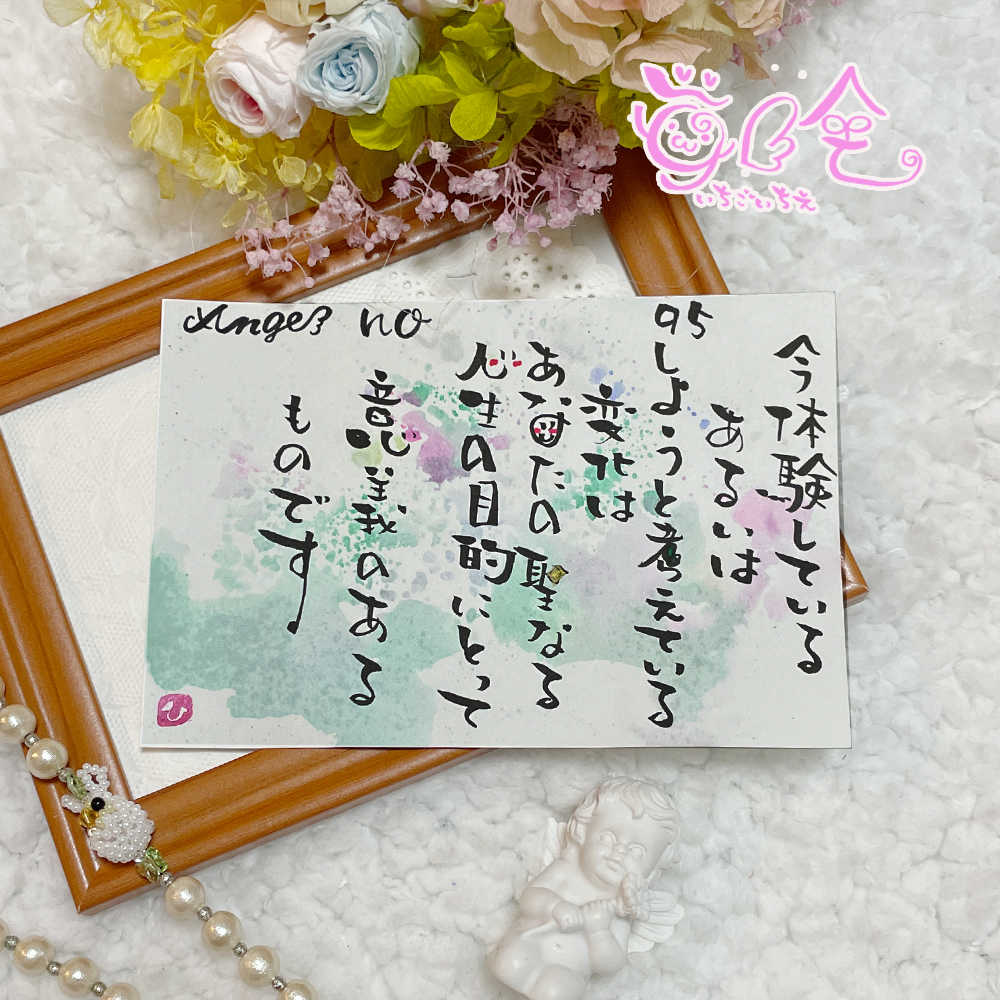 Angel no 95
今体験している
あるいは
しようと考えている
変化は
あなたの聖なる
人生の目的にとって
意義のある
ものです
ひ
いちごいちえ